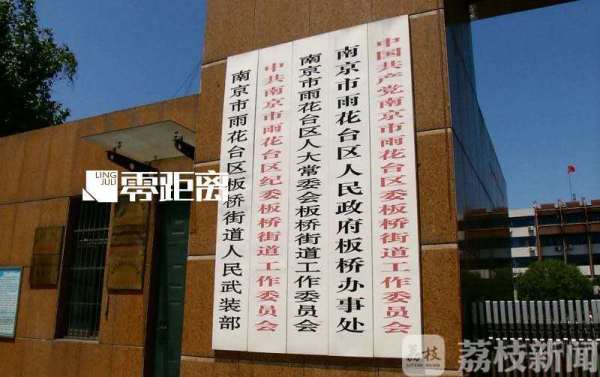 中国共产党南京市雨花台区委板桥街道工作委员会
南京市雨花台区人民政府板桥办事处
南京市雨花台区人大常委会板桥街道工作委员会
中共南京市雨花台区纪委板桥街道工作委员会
南京市雨花台区板桥街道人民武装部
LING
JULI
零距离
荔枝
荔枝新闻